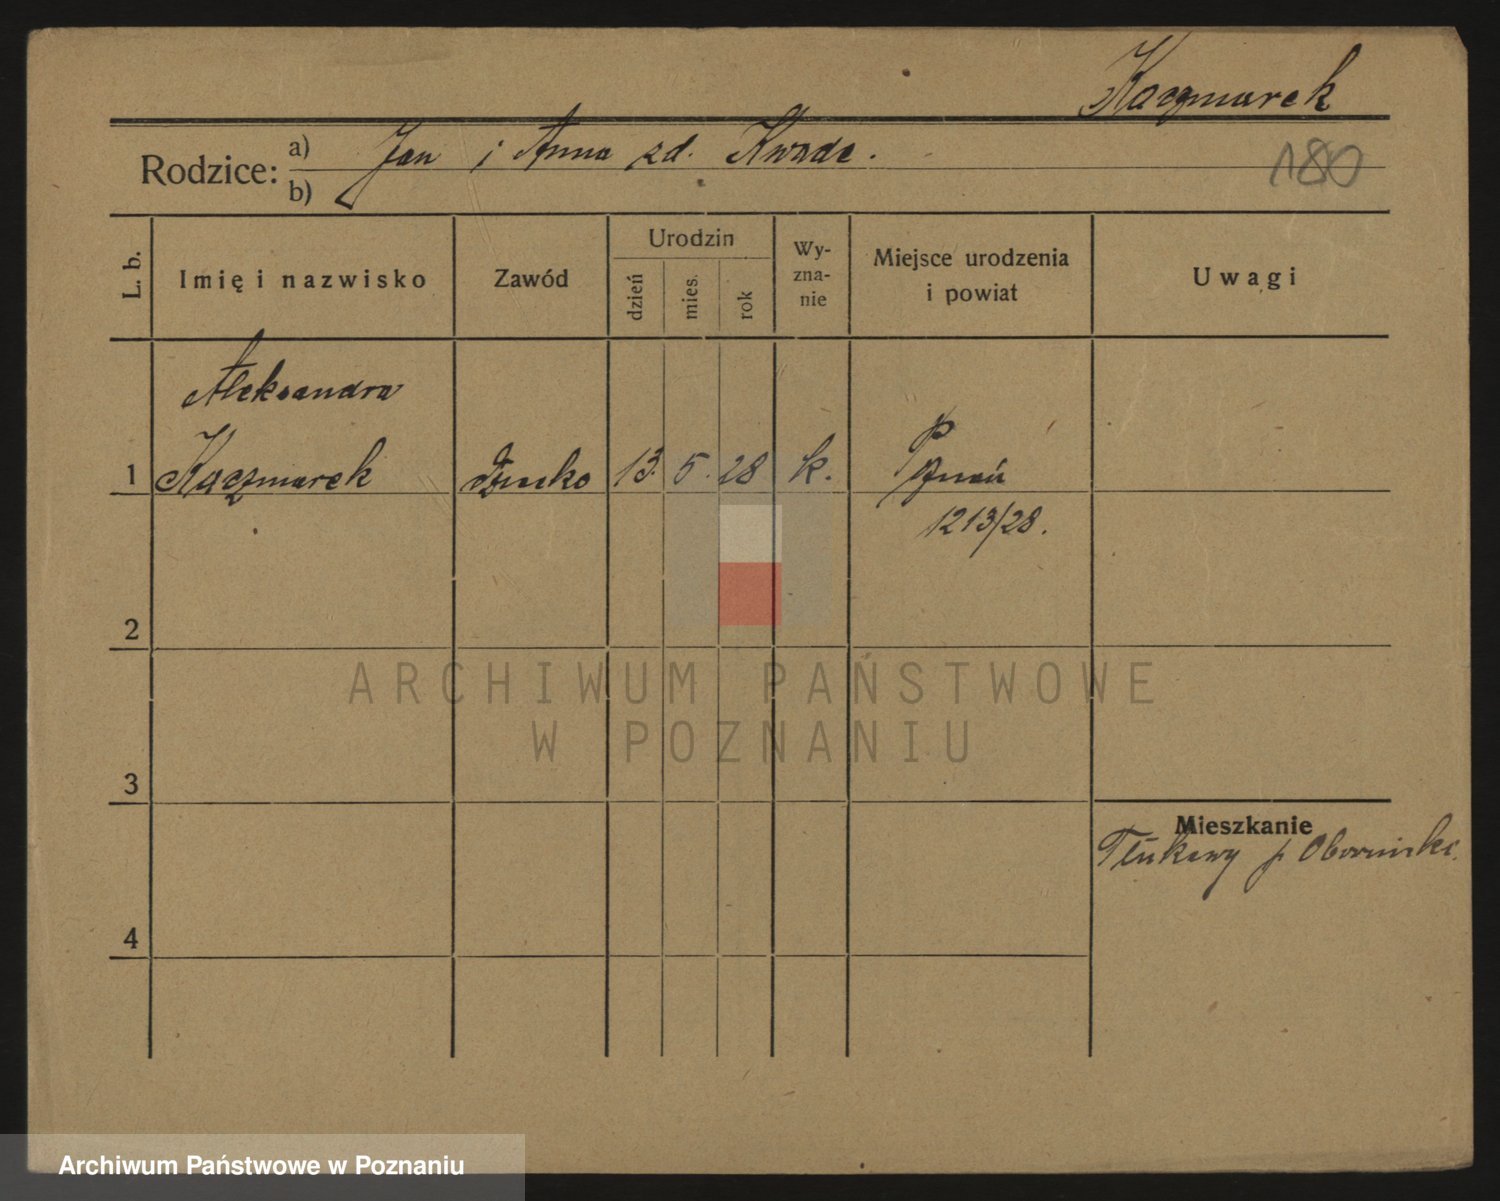 Kaczmarek
Rodzice: a) Jan i Anna zd. Kwade.
b)
180
L. b.
Imię i nazwisko
Zawód
Urodzin
dzień
mies.
rok
Wy-
zna-
nie
Miejsce urodzenia
i powiat
Uwagi
Aleksandra
1 Kaczmarek
13. 5. 28 k.
1213/28.
2
ARCHIWUM PAŃSTWOWE
W POZNANIU
3
Mieszkanie
4
Archiwum Państwowe w Poznaniu